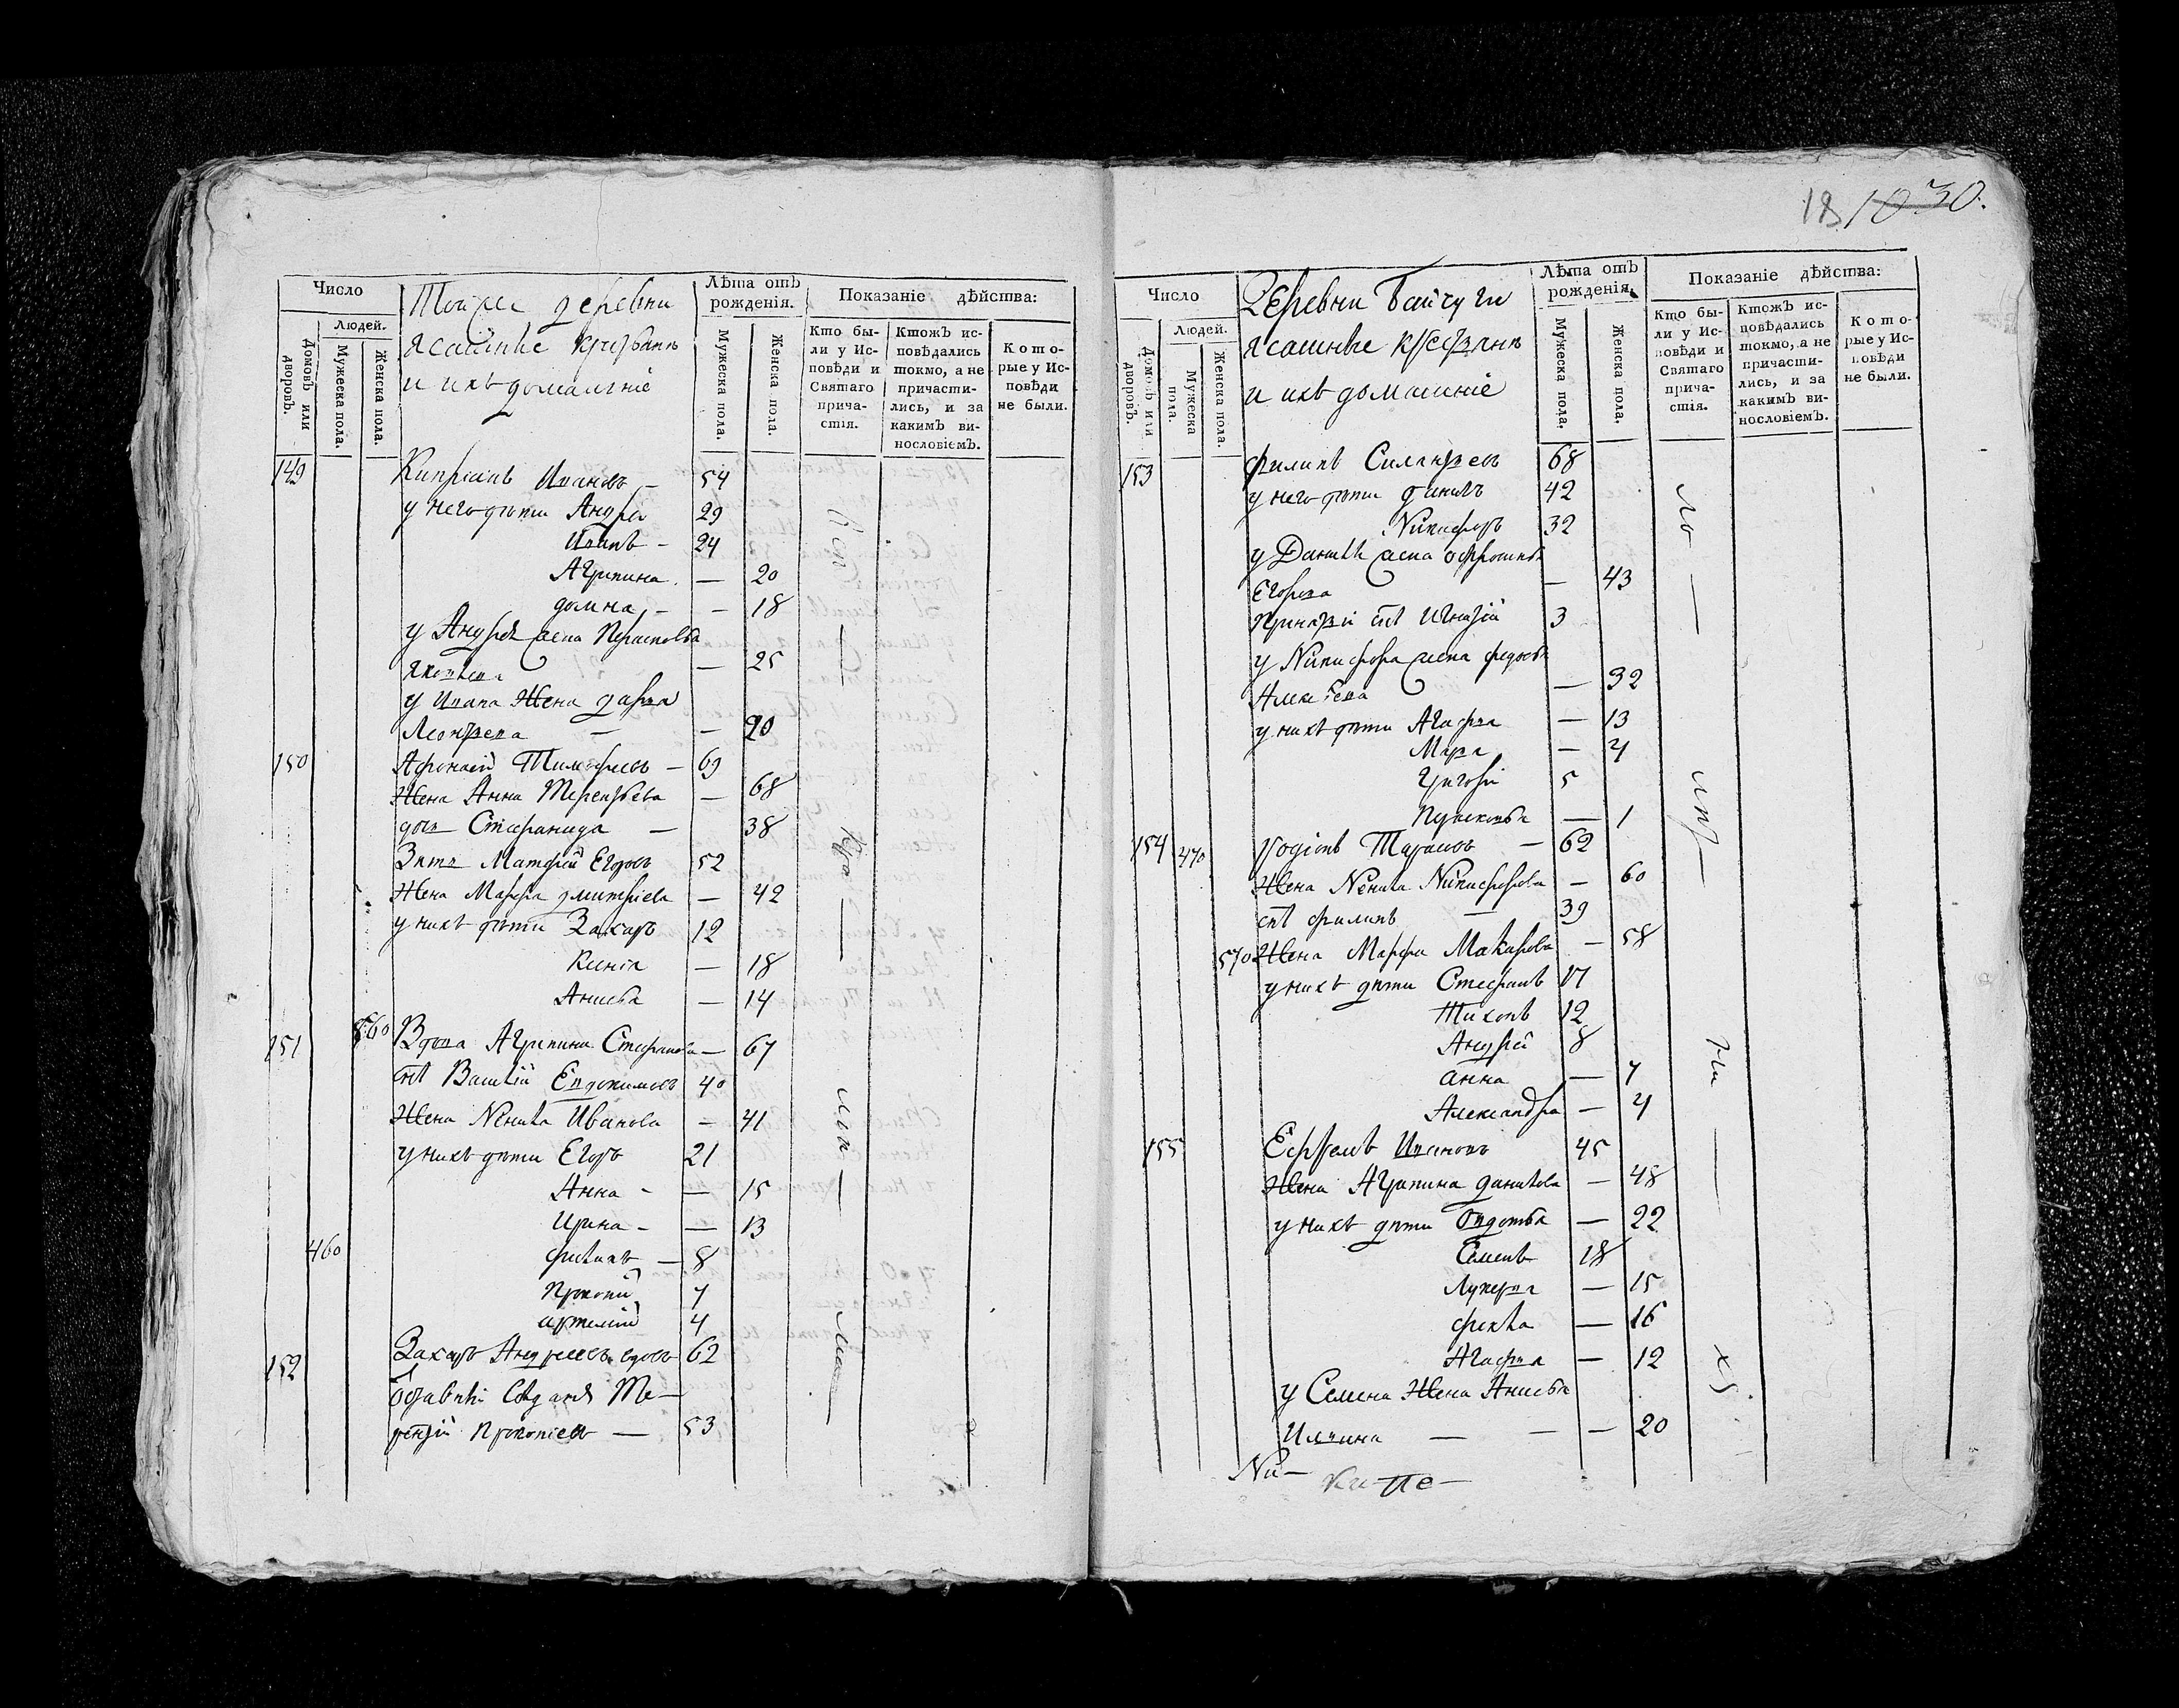 Число
Людей.
Домовъ или дворовъ.
Мужеска пола.
Женска пола.
Тойже деревни
ясашные крестьяне
и ихъ домашніе
Лѣта отъ рожденія.
Мужеска пола.
Женска пола.
Показаніе дѣйства:
Кто были у Исповѣди и Святаго причастія.
Ктожъ исповѣдались токмо, а не причастились, и за какимъ винословіемъ.
Которые у Исповѣди не были.
149 Кипріанъ Ивановъ – 54
у него дѣти Андрей 29
Иванъ – 24
Агрипина — 20
домна – – 18
у Андрея жена Парасковья
— 25
у Ивана Жена дарья
— – 20
150 Афонасей Тимофѣевъ – 69
Жена Анна Терентьева — 68
дочь Стефанида — 38
Зять Матфей Егоровъ 52
Жена Марфа дмитріева — 42
у нихъ дѣти Захаръ 12
Ксенія — 18
Анисья — 14
151 560 Вдова Агрипина Стефанова — 67
снъ Василій Евдокимовъ 40
Жена Ненила Иванова — 41
у нихъ дѣти Егоръ 21
Анна – — 15
Ирина – — 13
460 — 8
Прокопій 7
артемій 4
152 Захаръ Андреевъ вдовъ 62
Те—
рентій Прокопіевъ — 53
18 10 30.
Число
Людей.
Домовъ или дворовъ.
Мужеска пола.
Женска пола.
Деревни Байчуги
ясашные крестьяне
и ихъ домашніе
Лѣта отъ рожденія.
Мужеска пола.
Женска пола.
Показаніе дѣйства:
Кто были у Исповѣди и Святаго причастія.
Ктожъ исповѣдались токмо, а не причастились, и за какимъ винословіемъ.
Которые у Исповѣди не были.
153 филипъ Силантьевъ 68
у него дѣти данилъ 42
Никифоръ 32
у Данилы жена
Егорова — 43
снъ Игнатій 3
у Никифора жена федосья
— 32
у нихъ дѣти Агафья — 13
Марья — 4
Григорій 5
— 1
154 470 Родіонъ Тарасовъ — 62
Жена Ненила Никифорова — 60
снъ филипъ — 39
570 Жена Марфа Макарова — 58
у нихъ дѣти Стефанъ 17
Тихонъ 12
Андрей 8
анна — 7
Александра — 4
155 Ефремъ Ивановъ 45
Жена Агрипина данилова — 48
у нихъ дѣти Овдотья — 22
Семенъ 18
Лукерья — 15
фекла — 16
Агафья — 12
у Семена Жена Анисья
Ильина — — — 20
Ни—